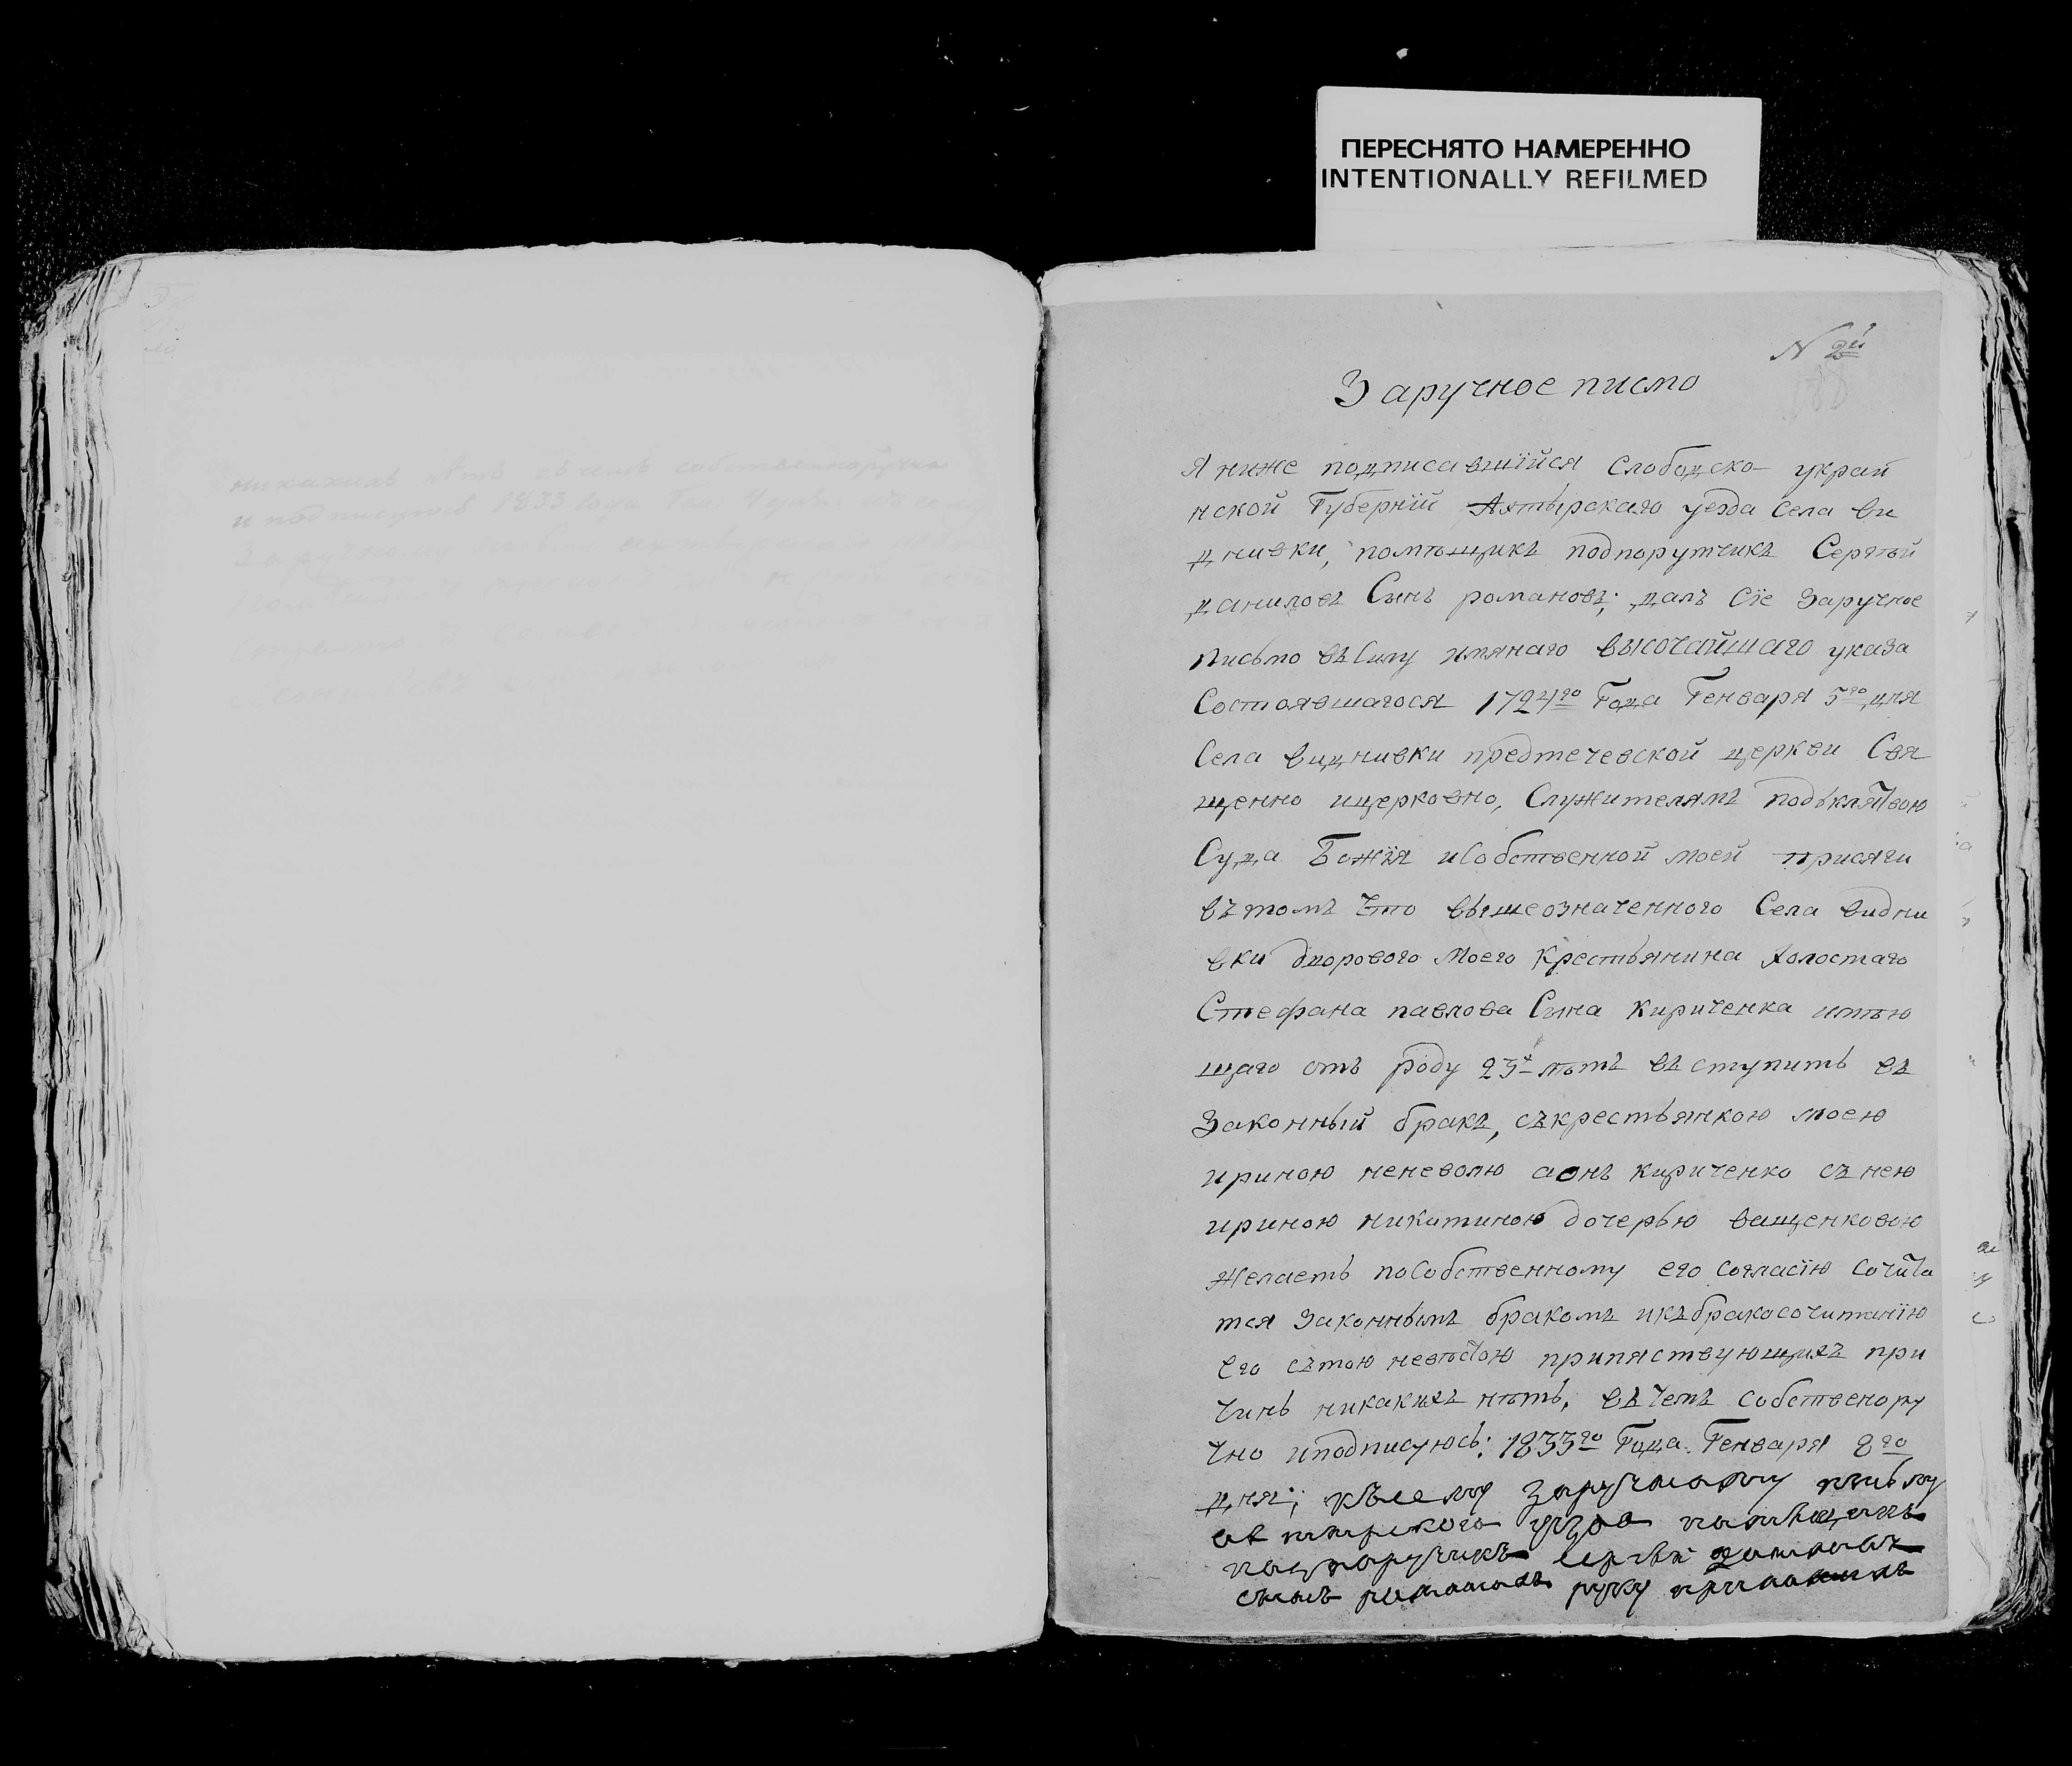 ПЕРЕСНЯТО НАМЕРЕННО
INTENTIONALLY REFILMED
никакихъ нѣтъ въ семъ собственноручно
и подписуюсь 1833 года Ген:
N 2й
188
Заручное писмо
Я ниже подписавшїйся Слободско украи
нской Губернїй Ахтырскаго уезда Села Ви
днивки, помѣщикъ подпорутчикъ Сергѣй
даниловъ Сынъ романовъ; далъ Сїе Заручное
письмо въ Силу имянаго высочайшаго указа
Состоявшагося 1724го Года Генваря 5го дня
Села видневки предтечевской церкви Свя
щенно ицерковно, Служителямъ подъклятвою
Суда Божїя исобственной моей присяги
въ томъ что вышеозначенного Села видни
вки дворового моего крестьянина холостаго
Стефана павлова Сына Кириченка имѣю
щаго отъ роду 23х лѣтъ въступить въ
Законный бракъ, съкрестьянкою моею
ириною неневолю аонъ кириченко съ нею
ириною никитиною дочерью ващенковою
желаетъ пособственному его согласїю сочита
тся Законнымъ бракомъ икъбракосочитанїю
Его сътою невѣстою припяствующихъ при
чинъ никакихъ нѣтъ, въ чемъ собственору
чно иподписуюсь: 1833го Года. Генваря 8го
дня; късему заручному письму
ахтырского уезда помѣщикъ
подпоручикъ Сергѣй даниловъ
сынъ романовъ руку приложилъ